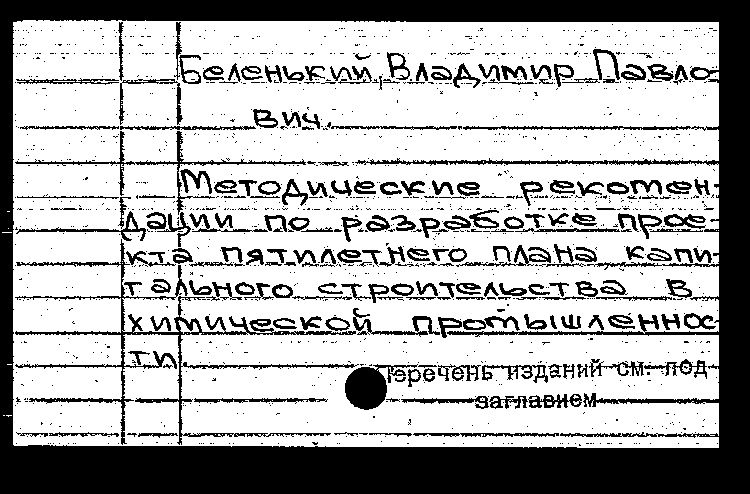 Беленький, Владимир Павло-
вич.
Методические рекомен-
дации по разработке прое-
кта пятилетнего плана капи-
тального строительства в
химической промышленнос-
ти.
Перечень изданий см. под
заглавием